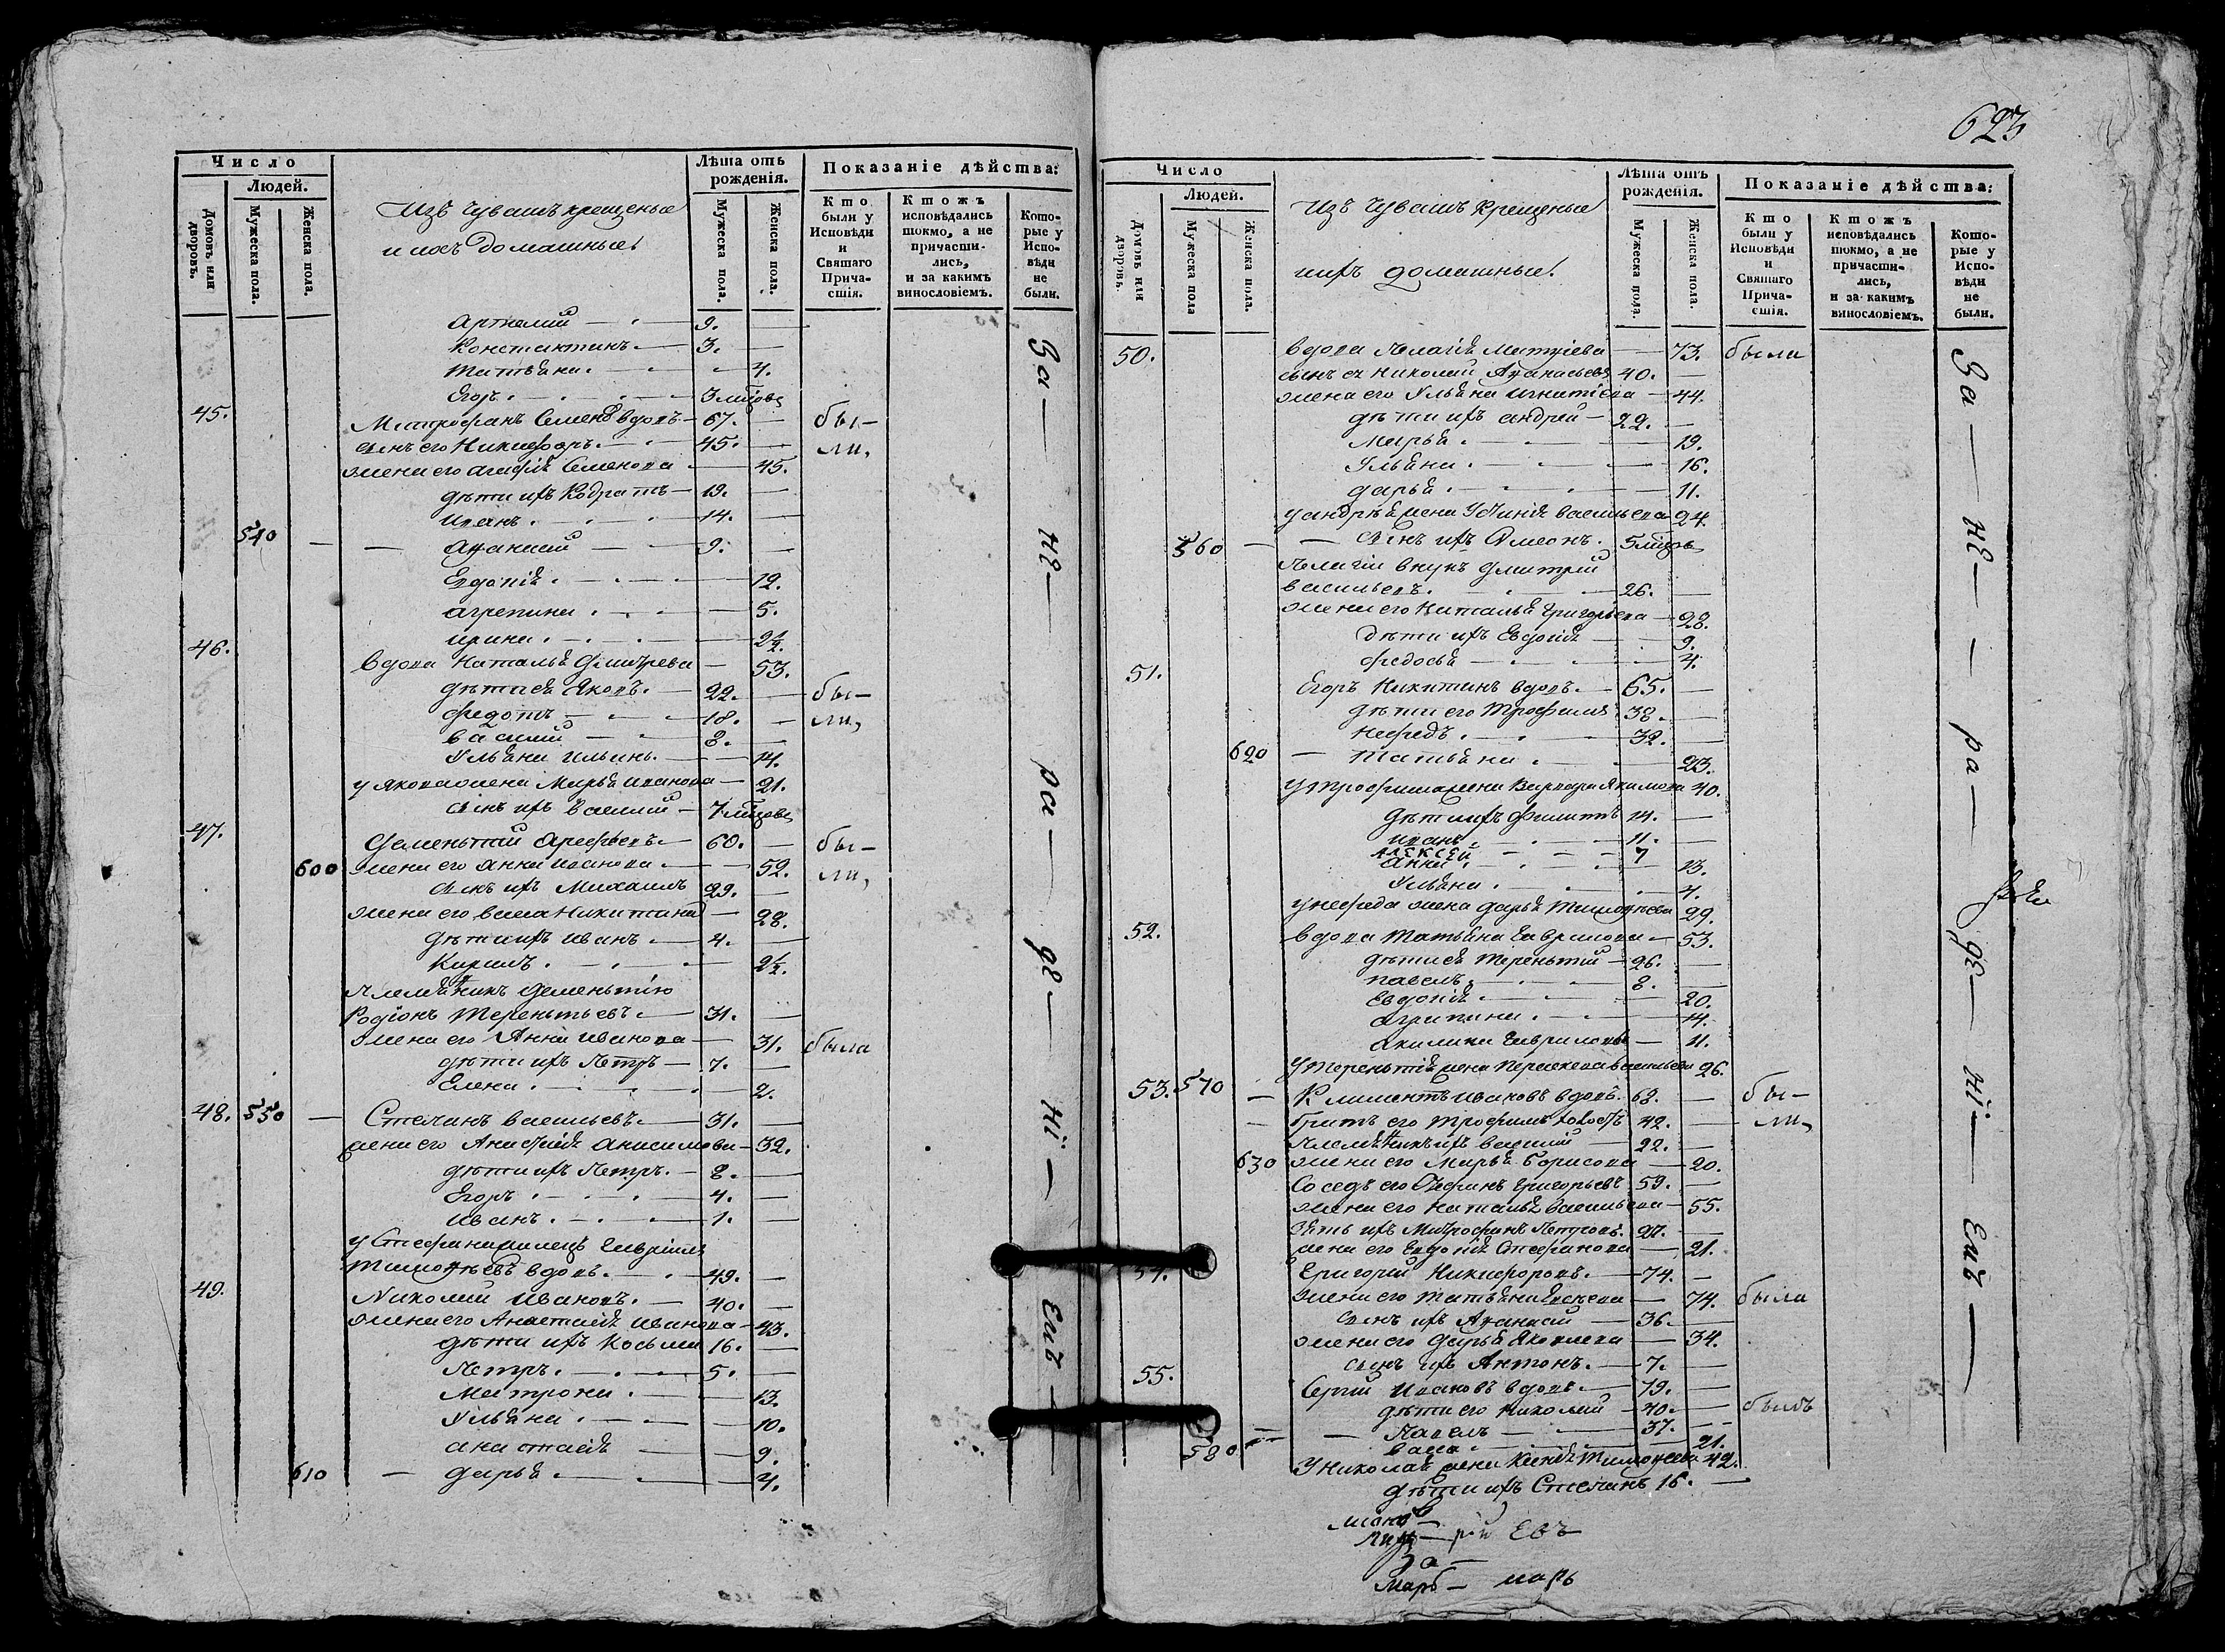 623
Число
Людей.
Домовъ или дворовъ.
Мужеска пола.
Женска пола.
Изъ Чувашъ крещеные
и ихъ домашные
Лѣта отъ рожденія.
Мужеска пола.
Женска пола.
Показаніе дѣйства:
Кто были у Исповѣди и Святаго Причастія.
Ктожъ исповѣдались токмо, а не причастились, и за какимъ винословіемъ.
Которые у Исповѣди не были.
Артемий 9.
Константинъ 3.
Татьяна 4.
Егоръ 3 мцовъ
45. Митрофанъ Семеновъ вдовъ 67. бы-
сынъ его Никифоръ 45. ли,
жена его Агафія Семенова 45.
дѣти ихъ Кодратъ 19.
Иванъ 14.
540 Афанасий 9.
Евдокія 12.
Агрепина 5.
Ирина 2½.
46. вдова Наталья Дмитрева 53.
дѣти ея Яковъ 22. бы-
Федотъ 18. ли,
василий 8.
Ульяна Ильина 14.
у Якова жена Марья Иванова 21.
сынъ ихъ василий 7 мцовъ
47. Дементий Арефьевъ 60. бы-
600 жена его Анна Иванова 52. ли,
сынъ ихъ Михаилъ 29.
жена его васса Никитина 28.
дѣти ихъ Иванъ 4.
Кирилъ 2½.
Племянникъ Дементию
Родіонъ Терентьевъ 31.
жена его Анна Иванова 31. была
дѣти ихъ Петръ 7.
Елена 2.
48. 550 Степанъ васильевъ 31.
жена его Анисья Анисимова 32.
дѣти ихъ Петръ 8.
Егоръ 4.
Иванъ 1.
у Стефана
Тимофѣевъ вдовъ 49.
49. Николай Ивановъ 40.
жена его Анастасія Иванова 43.
дѣти ихъ Косьма 16.
Петръ 5.
Матрона 13.
Ульяна 10.
Анастасія 9.
610 Дарья 4.
За — не — ра — де — ні — емъ
Число
Людей.
Домовъ или дворовъ.
Мужеска пола
Женска пола.
Изъ Чувашъ Крещеные
ихъ домашные.
Лѣта отъ рожденія.
Мужеска пола.
Женска пола.
Показаніе дѣйства:
Кто были у Исповѣди и Святаго Причастія.
Ктожъ исповѣдались токмо, а не причастились, и за какимъ винословіемъ.
Которые у Исповѣди не были.
50. вдова Пелагія Матвіева 73. была
сынъ ея Николай Афанасьевъ 40.
жена его Ульяна Игнатіева 44.
дѣти ихъ Андрей 22.
Марья 19.
Ульяна 16.
Дарья 11.
у Андрѣя жена васильева 24.
560 сынъ ихъ Симеонъ 5 мцовъ
Пелагіи внукъ Дмитрий
васильевъ 26.
жена его Наталья Григорьева 28.
дѣти ихъ Евдокія 9.
Федосья 4.
51. Егоръ Никитинъ вдовъ 65.
дѣти его Трофимъ 38.
Нефедъ 32.
620 Татьяна 23.
у Трофима жена Варвара Якимова 40.
дѣти ихъ Филиппъ 14.
Иванъ 11.
Алексей 7
Анна 13.
Ульяна 4.
у Нефеда жена Дарья Тимофѣева 29.
52. вдова Татьяна Гаврилова 53.
дѣти ея Терентий 26.
павелъ 8.
Евдокія 20.
Агрипина 14.
Акилина Гаврилова 11.
у Терентія жена Параскева васильева 26.
53. 570 Климентъ Ивановъ вдовъ 62. бы-
Братъ его Трофимъ холостъ 42. ли,
Племянникъ ихъ василий 22.
630 жена его Марья Борисова 20.
Соседъ его Григорьевъ 59.
жена его Наталья васильева 55.
Зять ихъ Митрофанъ Петровъ 27.
жена его Евдокія Стефанова 21.
54. Григорий Никифоровъ 74.
жена его Татьяна 74. была
сынъ ихъ Афанасий 36.
жена его Дарья Яковлева 34.
сынъ ихъ Антонъ 7.
55. Сергий Ивановъ вдовъ 79.
дѣти его Николай 40. былъ
580 Павелъ 37.
васса 21.
у Николая жена Ксенія Тимофѣева 42.
дѣти ихъ Степанъ 16.
За — не — ра — де — ні — емъ
рій Евъ
За
Марь — марь